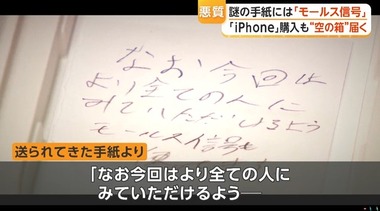 悪質
謎の手紙には「モールス信号」
「iPhone」購入も"空の箱"届く
なお今回は
より全ての人に
みていただけるよう
モールス信号を
送られてきた手紙より
「なお今回はより全ての人に
みていただけるよう━